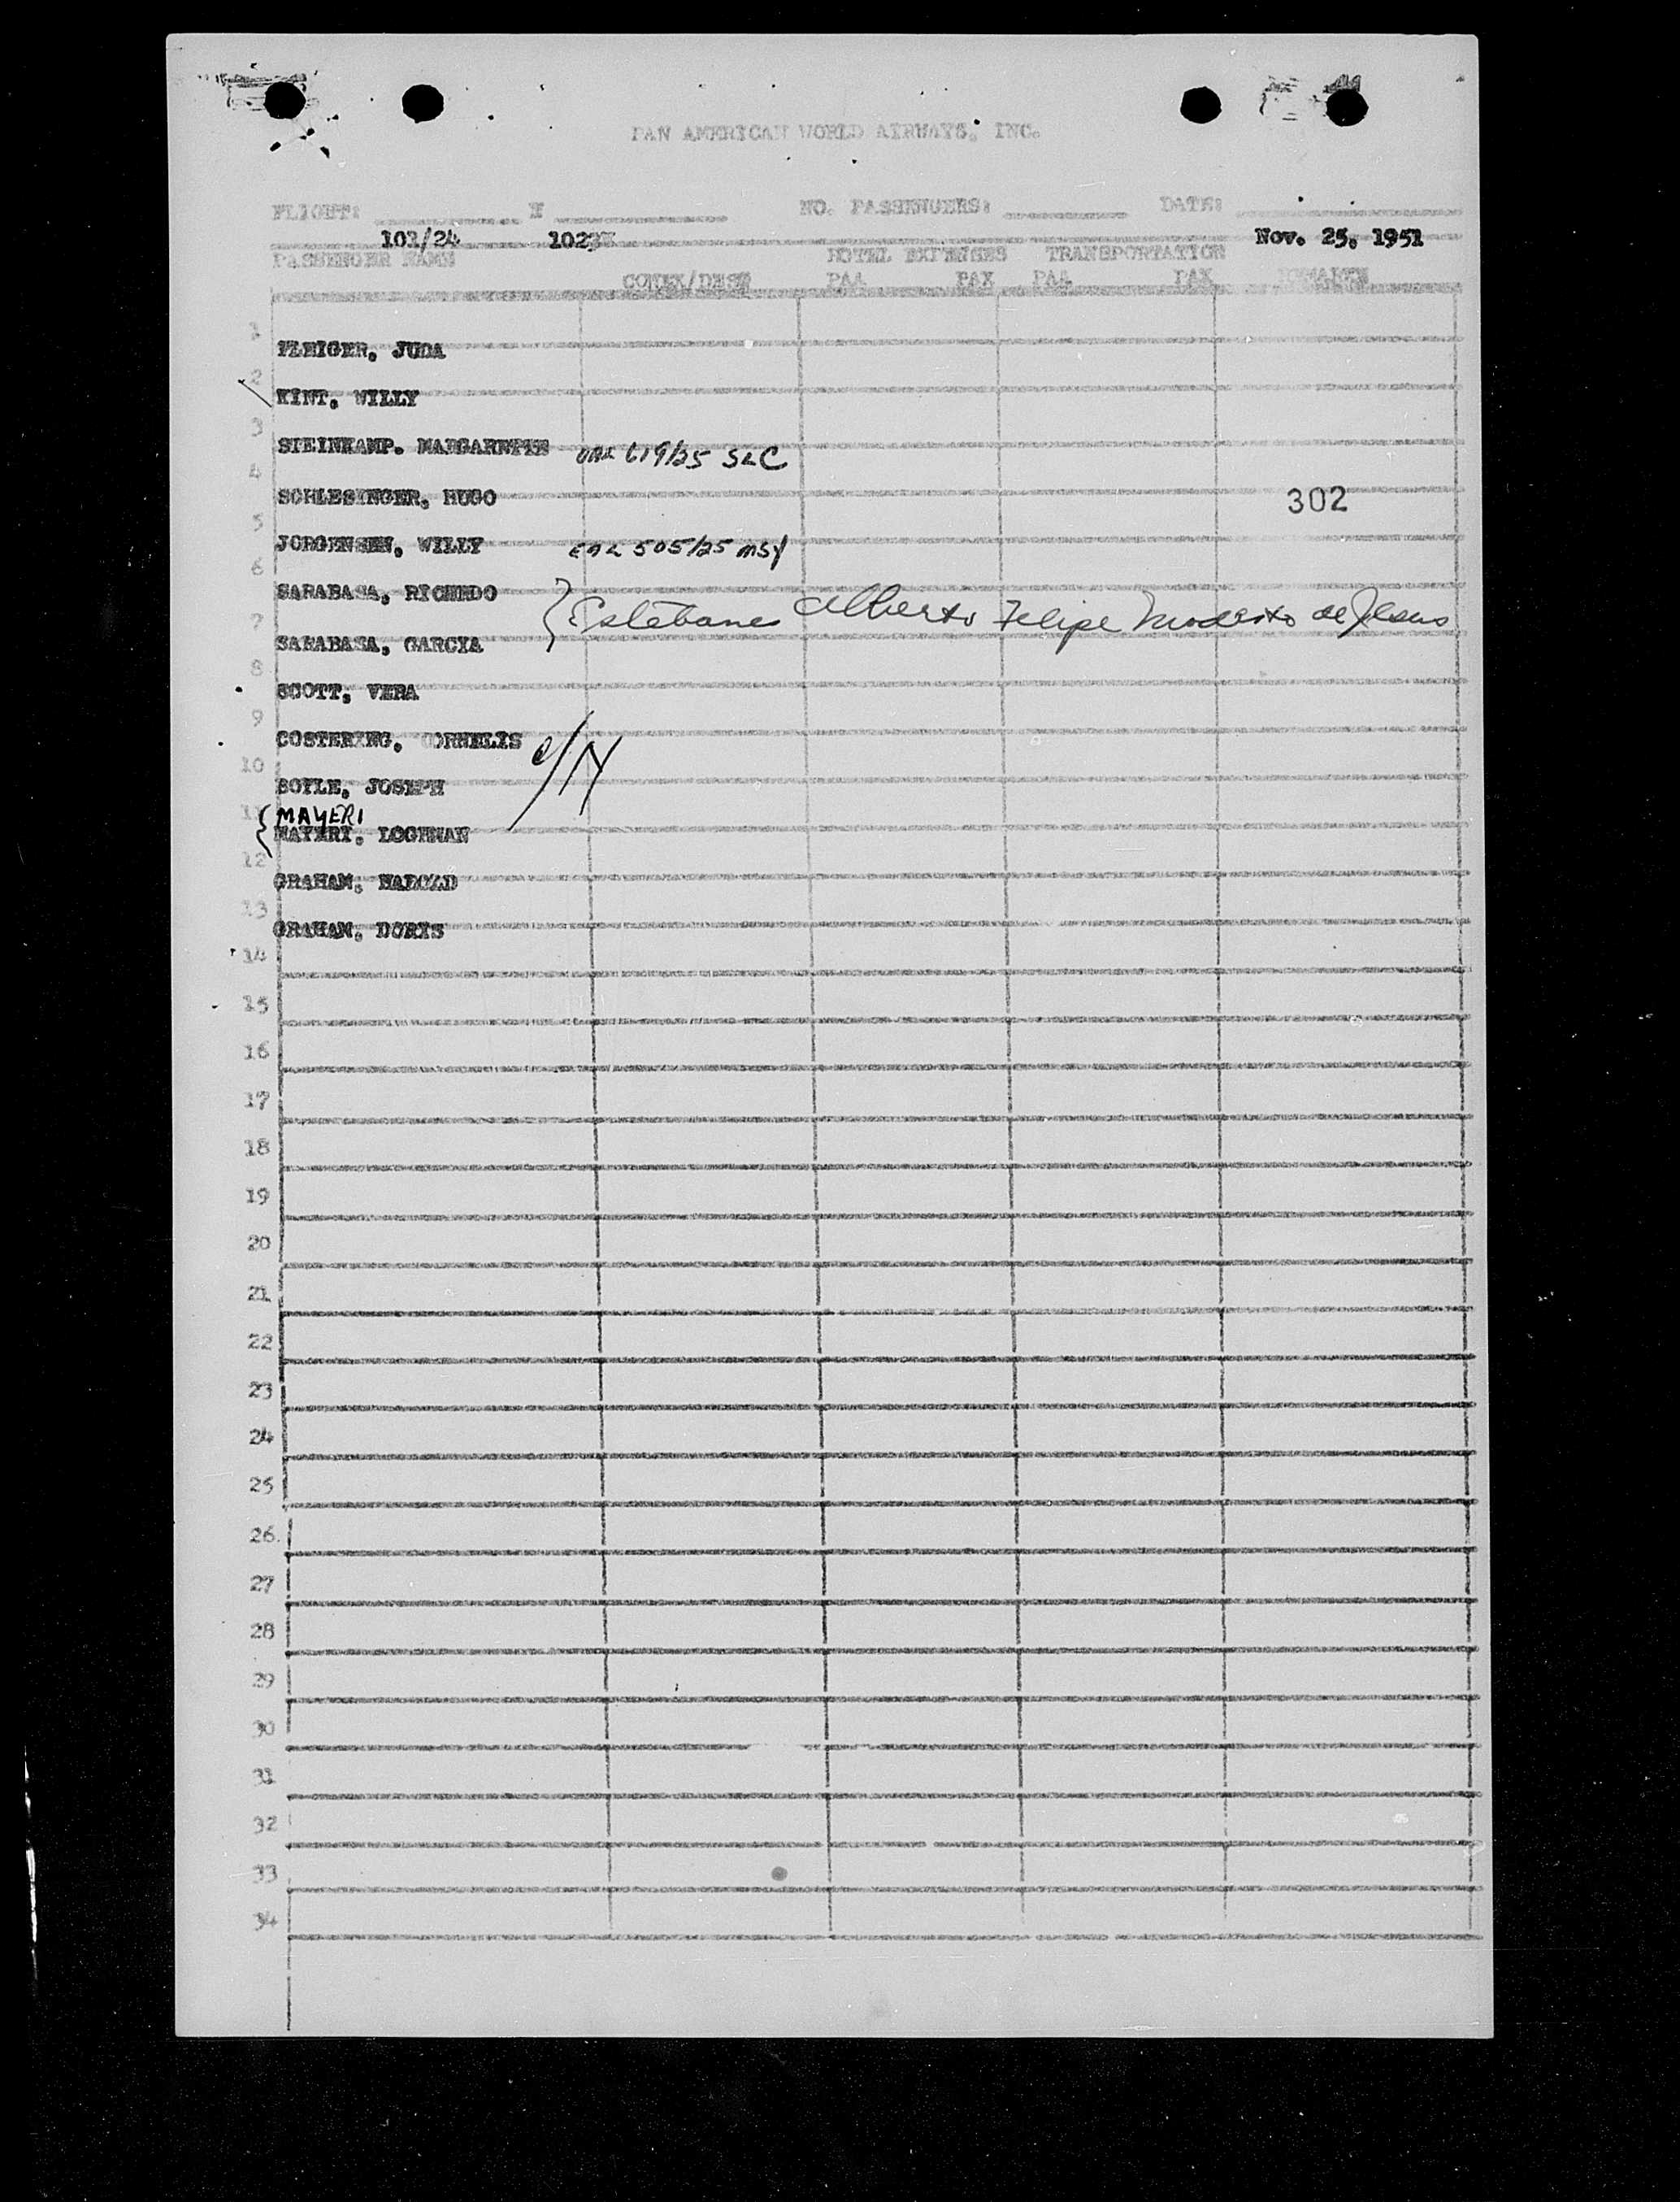 PAN AMERICAN WORLD AIRWAYS, INC.
FLIGHT: NO. PASSENGERS: DATE:
101/24 Nov. 25, 1951
PASSENGER NAME HOTEL EXPENSES TRANSPORTATION
CONEX/DEST PAA PAX PAA PAX REMARKS
1
JUDA
2
KINT, WILLY
3
STEINKAMP. MARGARETTE 619/25 SLC
4
SCHLESINGER, HUGO 302
5
JORGENSEN, WILLY EAL 505/25 MSY
6
SARABASA, RICHRDO
Estebane Alberto Felipe Modesto de Jesus
7
SARABASA, GARCIA
8
SCOTT, VERA
9
COSTERING, CORNELIS
10
JOSEPH
11
MAYERI
MAYERI, LOCHMAN
12
GRAHAM, HAROLD
13
GRAHAM, DORIS
14
15
16
17
18
19
20
21
22
23
24
25
26
27
28
29
30
31
32
33
34